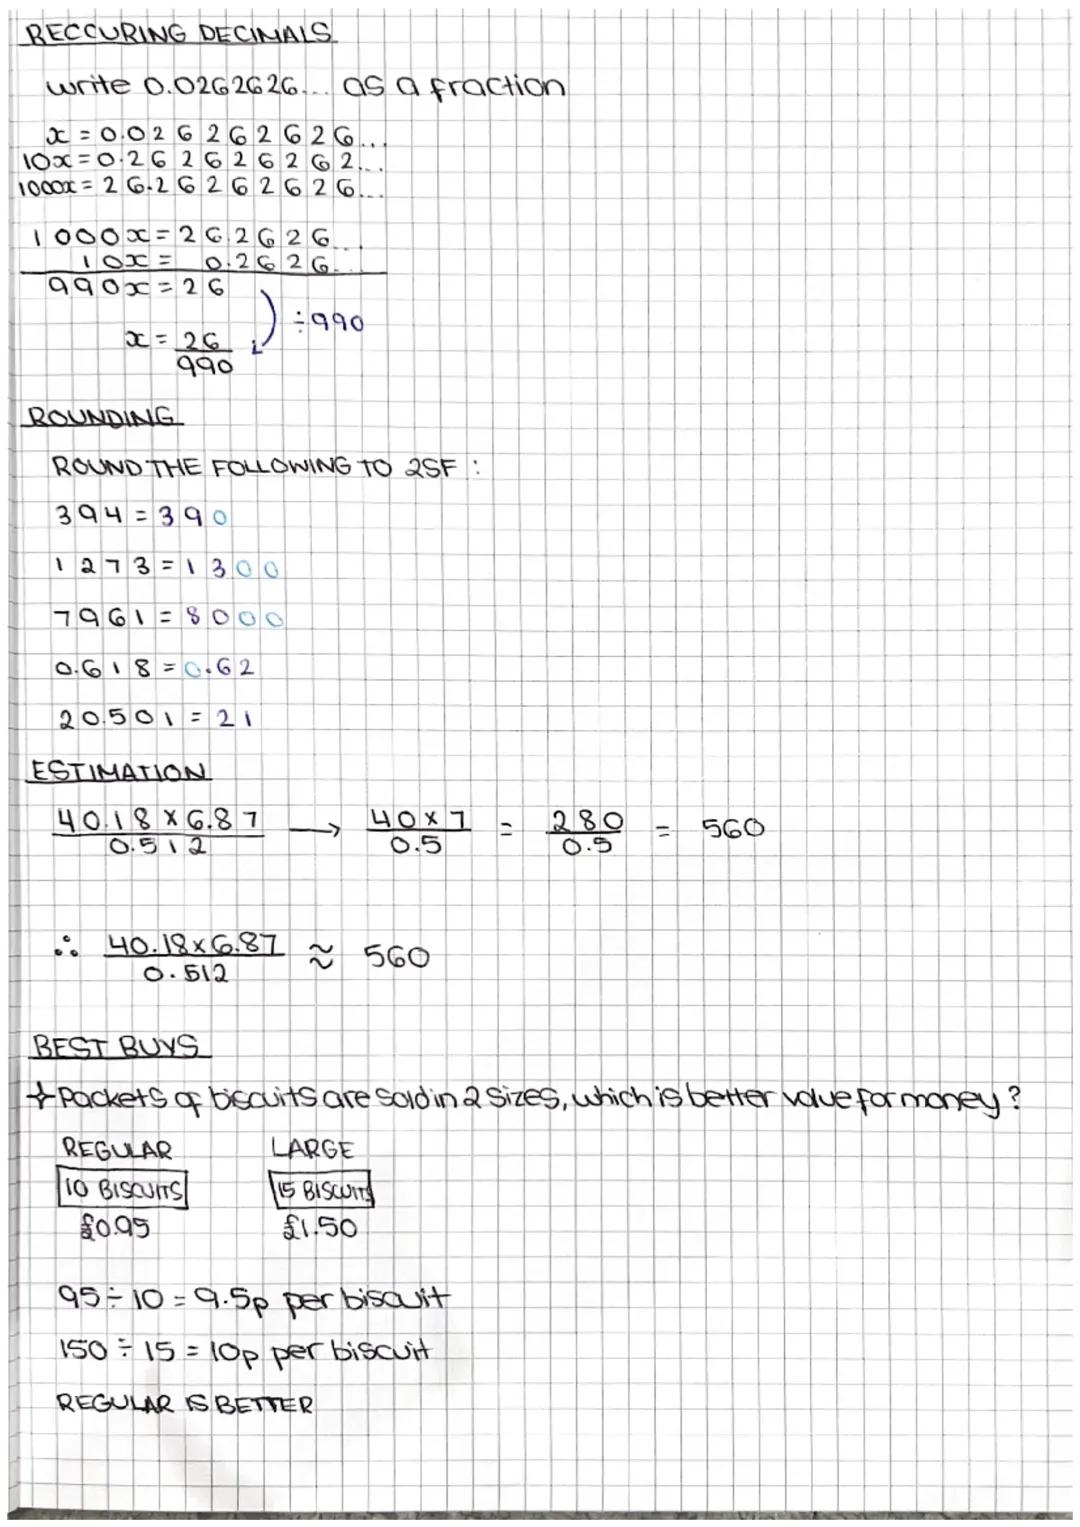 RECCURING DECIMALS
write 0.0262626... as a fraction
x = 0.0262626 26...
10x = 0.262626262...
1000x = 26.26262626...
1000x = 26.2626...
10x = 0.2626...
990x = 26
÷990
x = 26
990
ROUNDING
ROUND THE FOLLOWING TO 2SF :
394 = 390
1273 = 1300
7961 = 8000
0.618 = 0.62
20.501 = 21
ESTIMATION
40.18 × 6.87 → 40 × 7 = 280 = 560
0.512 0.5 0.5
∴ 40.18×6.87 ≈ 560
0.512
BEST BUYS
Packets of biscuits are sold in 2 sizes, which is better value for money?
REGULAR LARGE
10 BISCUITS 15 BISCUITS
£0.95 £1.50
95 ÷ 10 = 9.5p per biscuit
150 ÷ 15 = 10p per biscuit
REGULAR IS BETTER